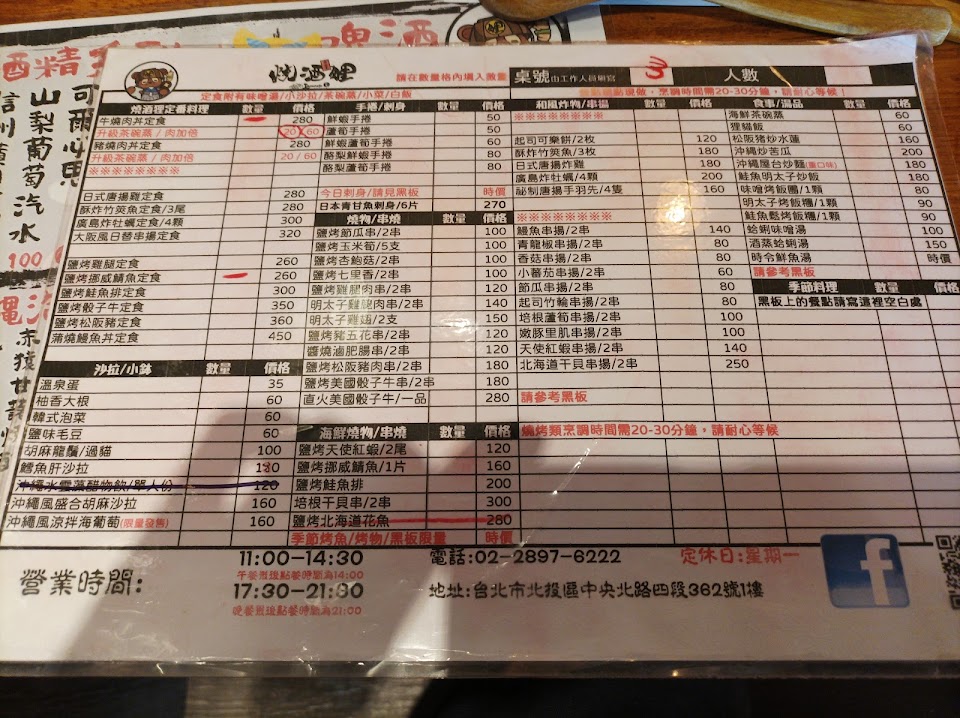 燒酒狸
請在數量格內填入數量
桌號由工作人員填寫 3 人數
定食附有味噌湯/小沙拉/茶碗蒸/小菜/白飯
餐點現點現做，烹調時間需20-30分鐘，請耐心等候！
燒酒狸定番料理 數量 價格
牛燒肉丼定食 280
升級茶碗蒸 / 肉加倍 20 / 60
豬燒肉丼定食 280
升級茶碗蒸 / 肉加倍 20 / 60
※※※※※※※※
日式唐揚雞定食 280
酥炸竹筴魚定食/3尾 280
廣島炸牡蠣定食/4顆 300
大阪風日替串揚定食 320
鹽烤雞腿定食 260
鹽烤挪威鯖魚定食 260
鹽烤鮭魚排定食 300
鹽烤骰子牛定食 350
鹽烤松阪豬定食 360
蒲燒鰻魚丼定食 450
沙拉/小鉢 數量 價格
溫泉蛋 35
柚香大根 60
韓式泡菜 60
鹽味毛豆 60
胡麻龍鬚/過貓 100
鱈魚肝沙拉 180
沖繩水雲藻醋物飲/單人份 120
沖繩風盛合胡麻沙拉 160
沖繩風涼拌海葡萄(限量發售) 160
手捲/刺身 數量 價格
鮮蝦手捲 50
蘆筍手捲 50
鮮蝦蘆筍手捲 60
酪梨鮮蝦手捲 80
酪梨蘆筍手捲 80
今日刺身/請見黑板 時價
日本青甘魚刺身/6片 270
燒物/串燒 數量 價格
鹽烤節瓜串/2串 100
鹽烤玉米筍/5支 100
鹽烤杏鮑菇/2串 100
鹽烤七里香/2串 100
鹽烤雞腿肉串/2串 120
明太子雞腿肉串/2串 140
明太子雞翅/2支 150
鹽烤豬五花串/2串 120
醬燒滷肥腸串/2串 120
鹽烤松阪豬肉串/2串 180
鹽烤美國骰子牛串/2串 180
直火美國骰子牛/一品 280
海鮮燒物/串燒 數量 價格
鹽烤天使紅蝦/2尾 120
鹽烤挪威鯖魚/1片 160
鹽烤鮭魚排 200
培根干貝串/2串 300
鹽烤北海道花魚 280
季節烤魚/烤物/黑板限量 時價
和風炸物/串揚 數量 價格
※※※※※※※※
起司可樂餅/2枚 120
酥炸竹筴魚/3枚 160
日式唐揚炸雞 180
廣島炸牡蠣/4顆 200
祕制唐揚手羽先/4隻 160
※※※※※※※※
鰻魚串揚/2串 140
青龍椒串揚/2串 80
香菇串揚/2串 80
小蕃茄串揚/2串 60
節瓜串揚/2串 80
起司竹輪串揚/2串 80
培根蘆筍串揚/2串 100
嫩豚里肌串揚/2串 100
天使紅蝦串揚/2串 140
北海道干貝串揚/2串 250
請參考黑板
燒烤類烹調時間需20-30分鐘，請耐心等候
食事/湯品 數量 價格
海鮮茶碗蒸 60
狸貓飯 60
松阪豬炒水蓮 160
沖繩炒苦瓜 200
沖繩屋台炒麵(重口味) 180
鮭魚明太子炒飯 180
味噌烤飯糰/1顆 80
明太子烤飯糰/1顆 90
鮭魚鬆烤飯糰/1顆 90
蛤蜊味噌湯 100
酒蒸蛤蜊湯 150
時令鮮魚湯 時價
請參考黑板
季節料理 數量 價格
黑板上的餐點請寫這裡空白處
營業時間:
11:00-14:30
午餐最後點餐時間為14:00
17:30-21:30
晚餐最後點餐時間為21:00
電話:02-2897-6222
定休日:星期一
地址:台北市北投區中央北路四段362號1樓
f
可爾必思
山梨葡萄汽水
100